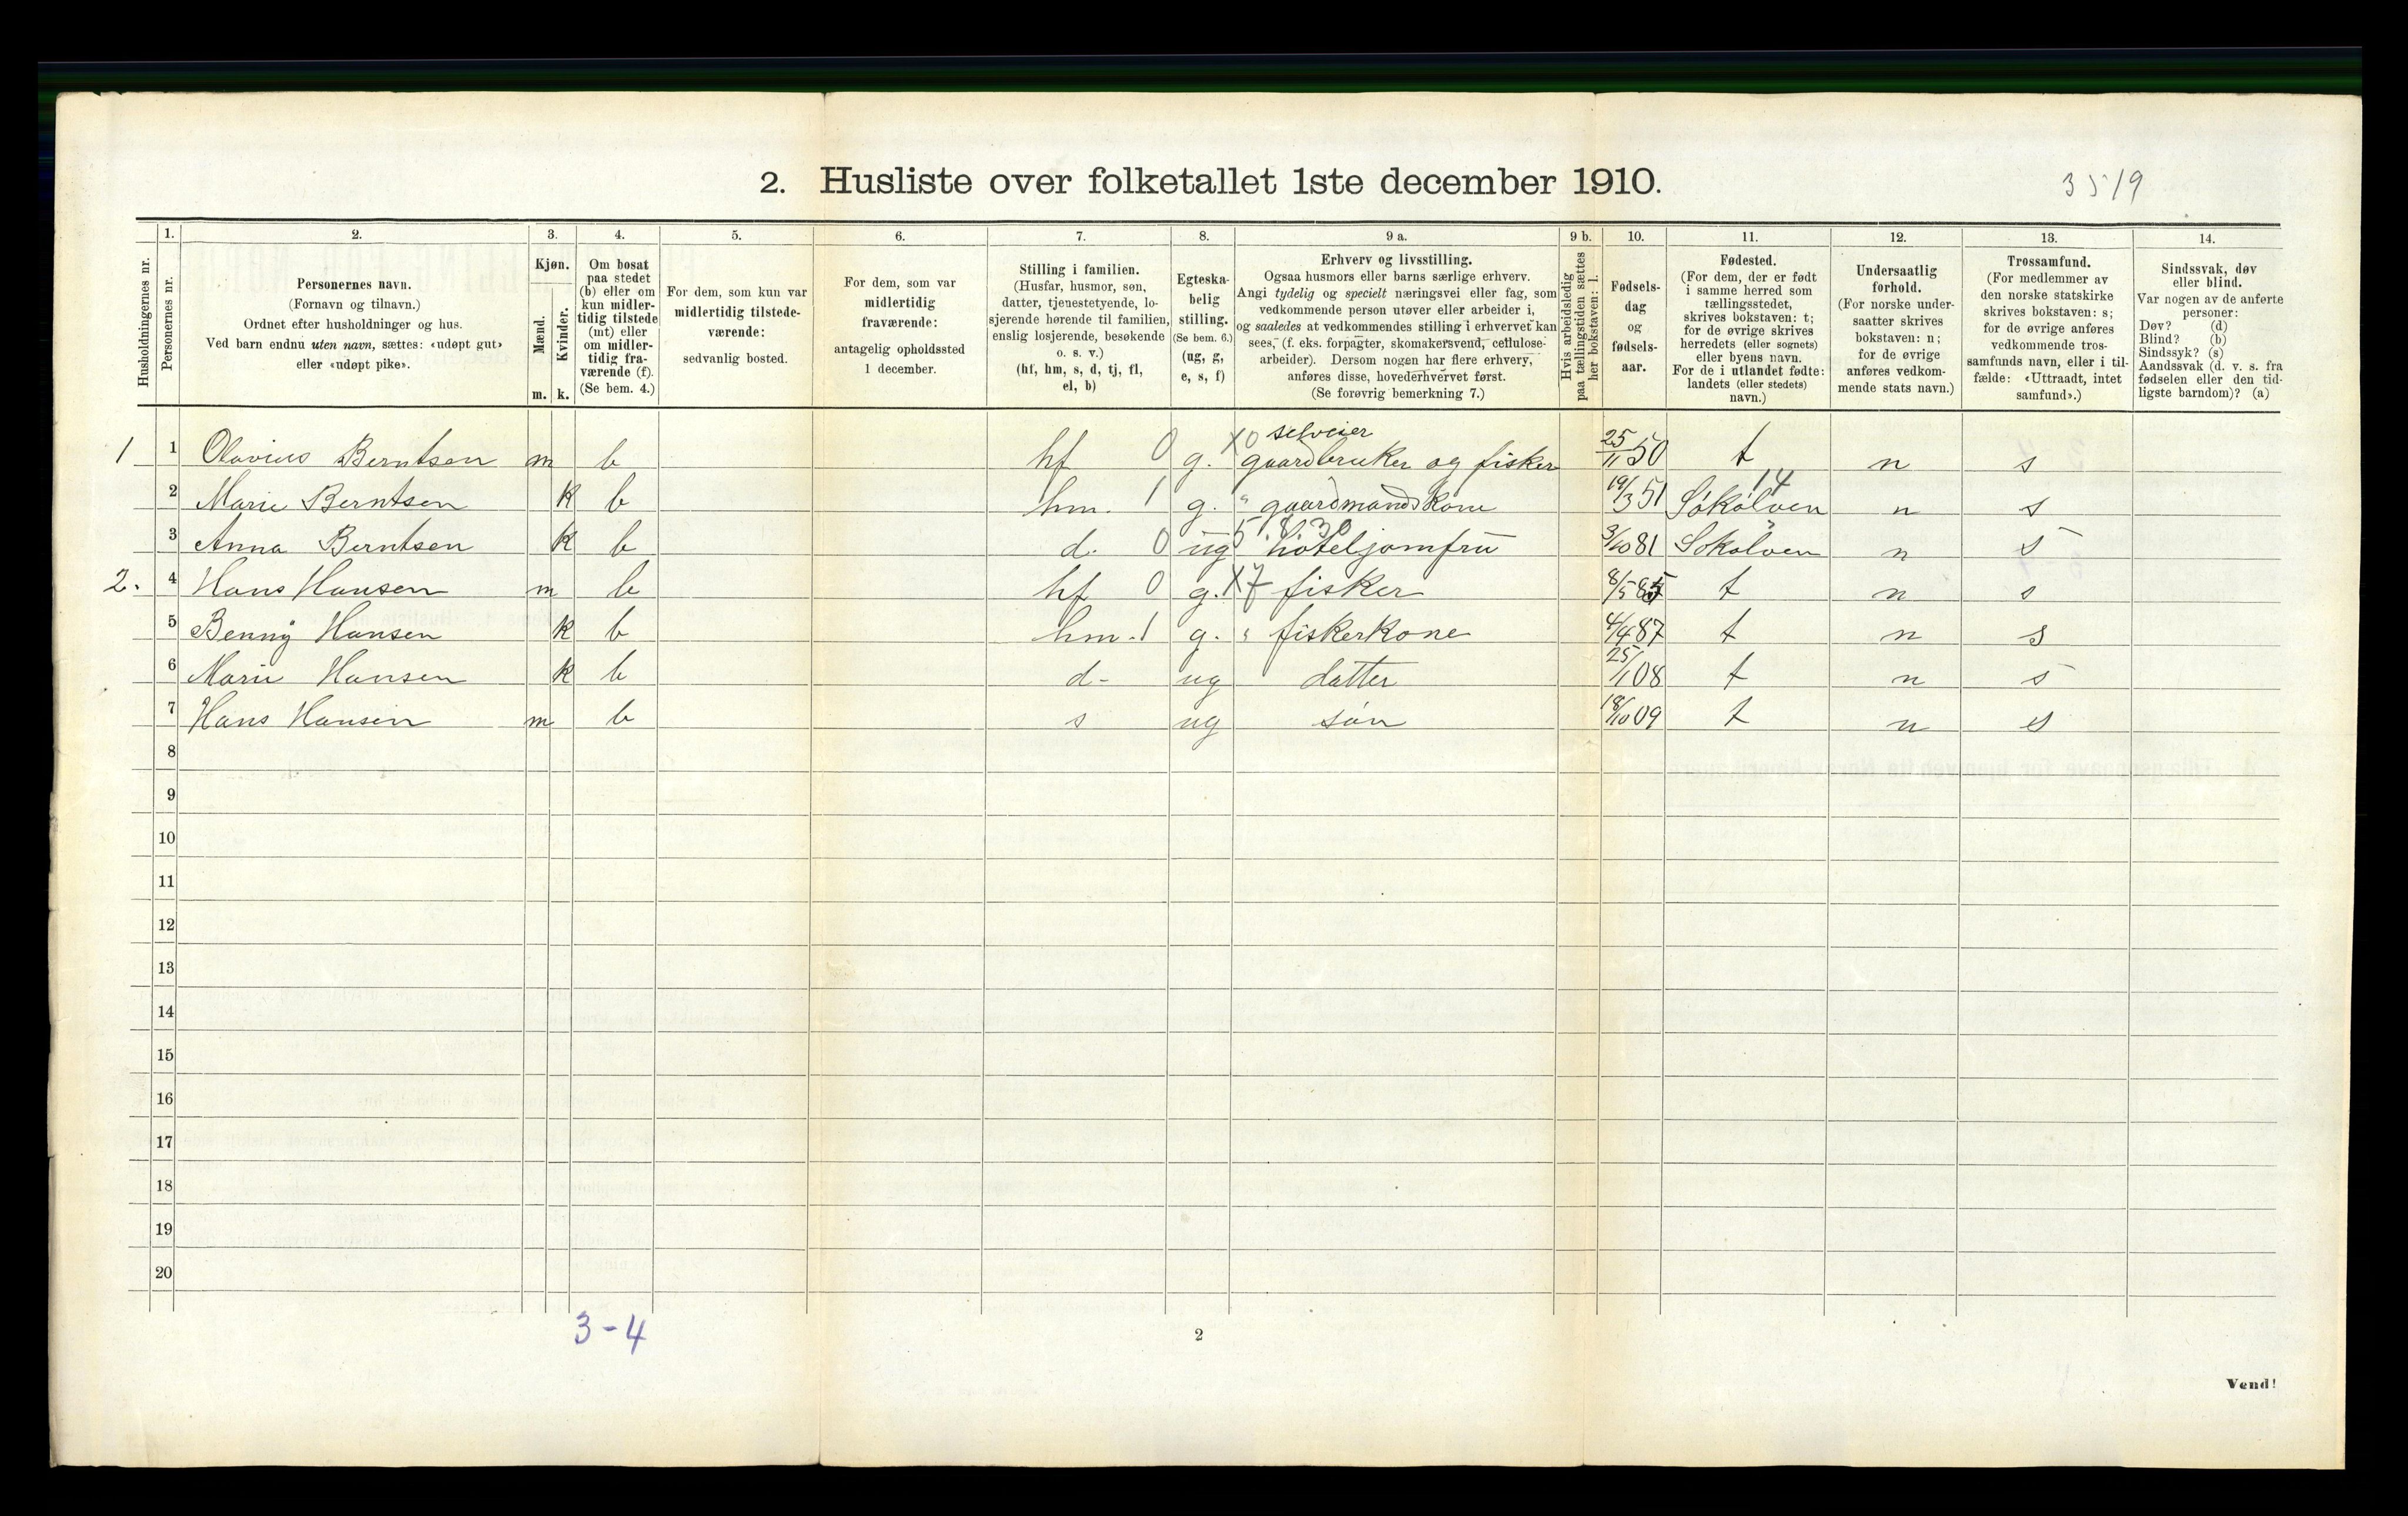 2. Husliste over folketallet 1ste december 1910.
3519
1. 2. 3. 4. 5. 6. 7. 8. 9 a. 9 b. 10. 11. 12. 13. 14.
Husholdningernes nr.
Personernes nr.
Personernes navn.
(Fornavn og tilnavn.)
Ordnet efter husholdninger og hus.
Ved barn endnu uten navn, sættes: «udøpt gut»
eller «udøpt pike».
Kjøn.
Mænd.
Kvinder.
m. k.
Om bosat
paa stedet
(b) eller om
kun midler-
tidig tilstede
(mt) eller
om midler-
tidig fra-
værende (f).
(Se bem. 4.)
For dem, som kun var
midlertidig tilstede-
værende:
sedvanlig bosted.
For dem, som var
midlertidig
fraværende:
antagelig opholdssted
1 december.
Stilling i familien.
(Husfar, husmor, søn,
datter, tjenestetyende, lo-
sjerende hørende til familien,
enslig losjerende, besøkende
o. s. v.)
(hf, hm, s, d, tj, fl,
el, b)
Egteska-
belig
stilling.
(Se bem. 6.)
(ug, g,
e, s, f)
Erhverv og livsstilling.
Ogsaa husmors eller barns særlige erhverv.
Angi tydelig og specielt næringsvei eller fag, som
vedkommende person utøver eller arbeider i,
og saaledes at vedkommendes stilling i erhvervet kan
sees, (f. eks. forpagter, skomakersvend, cellulose-
arbeider). Dersom nogen har flere erhverv,
anføres disse, hovederhvervet først.
(Se forøvrig bemerkning 7.)
Hvis arbeidsledig
paa tællingstiden sættes
her bokstaven: l.
Fødsels-
dag
og
fødsels-
aar.
Fødested.
(For dem, der er født
i samme herred som
tællingsstedet,
skrives bokstaven: t;
for de øvrige skrives
herredets (eller sognets)
eller byens navn.
For de i utlandet fødte:
landets (eller stedets)
navn.)
Undersaatlig
forhold.
(For norske under-
saatter skrives
bokstaven: n;
for de øvrige
anføres vedkom-
mende stats navn.)
Trossamfund.
(For medlemmer av
den norske statskirke
skrives bokstaven: s;
for de øvrige anføres
vedkommende tros-
samfunds navn, eller i til-
fælde: «Uttraadt, intet
samfund».)
Sindssvak, døv
eller blind.
Var nogen av de anførte
personer:
Døv? (d)
Blind? (b)
Sindssyk? (s)
Aandssvak (d. v. s. fra
fødselen eller den tid-
ligste barndom)? (a)
selveier
1 1 Olavius Berntsen m b hf 0 g. X0 gaardbruker og fisker 25/11 50 t n s
14
2 Marie Berntsen k b hm. 1 g. " gaardmandskone 19/3 51 Søkølven n s
5 8 30
3 Anna Berntsen k b d. 0 ug hoteljomfru 3/10 81 Søkølven n s
2. 4 Hans Hansen m b hf 0 g. X7 fisker 8/5 85 t n s
5 Benny Hansen k b hm. 1 g. " fiskerkone 4/4 87 t n s
6 Marie Hansen k b d- ug datter 25/1 08 t n s
7 Hans Hansen m b s ug søn 18/10 09 t n s
8
9
10
11
12
13
14
15
16
17
18
19
20
3-4
2
Vend!